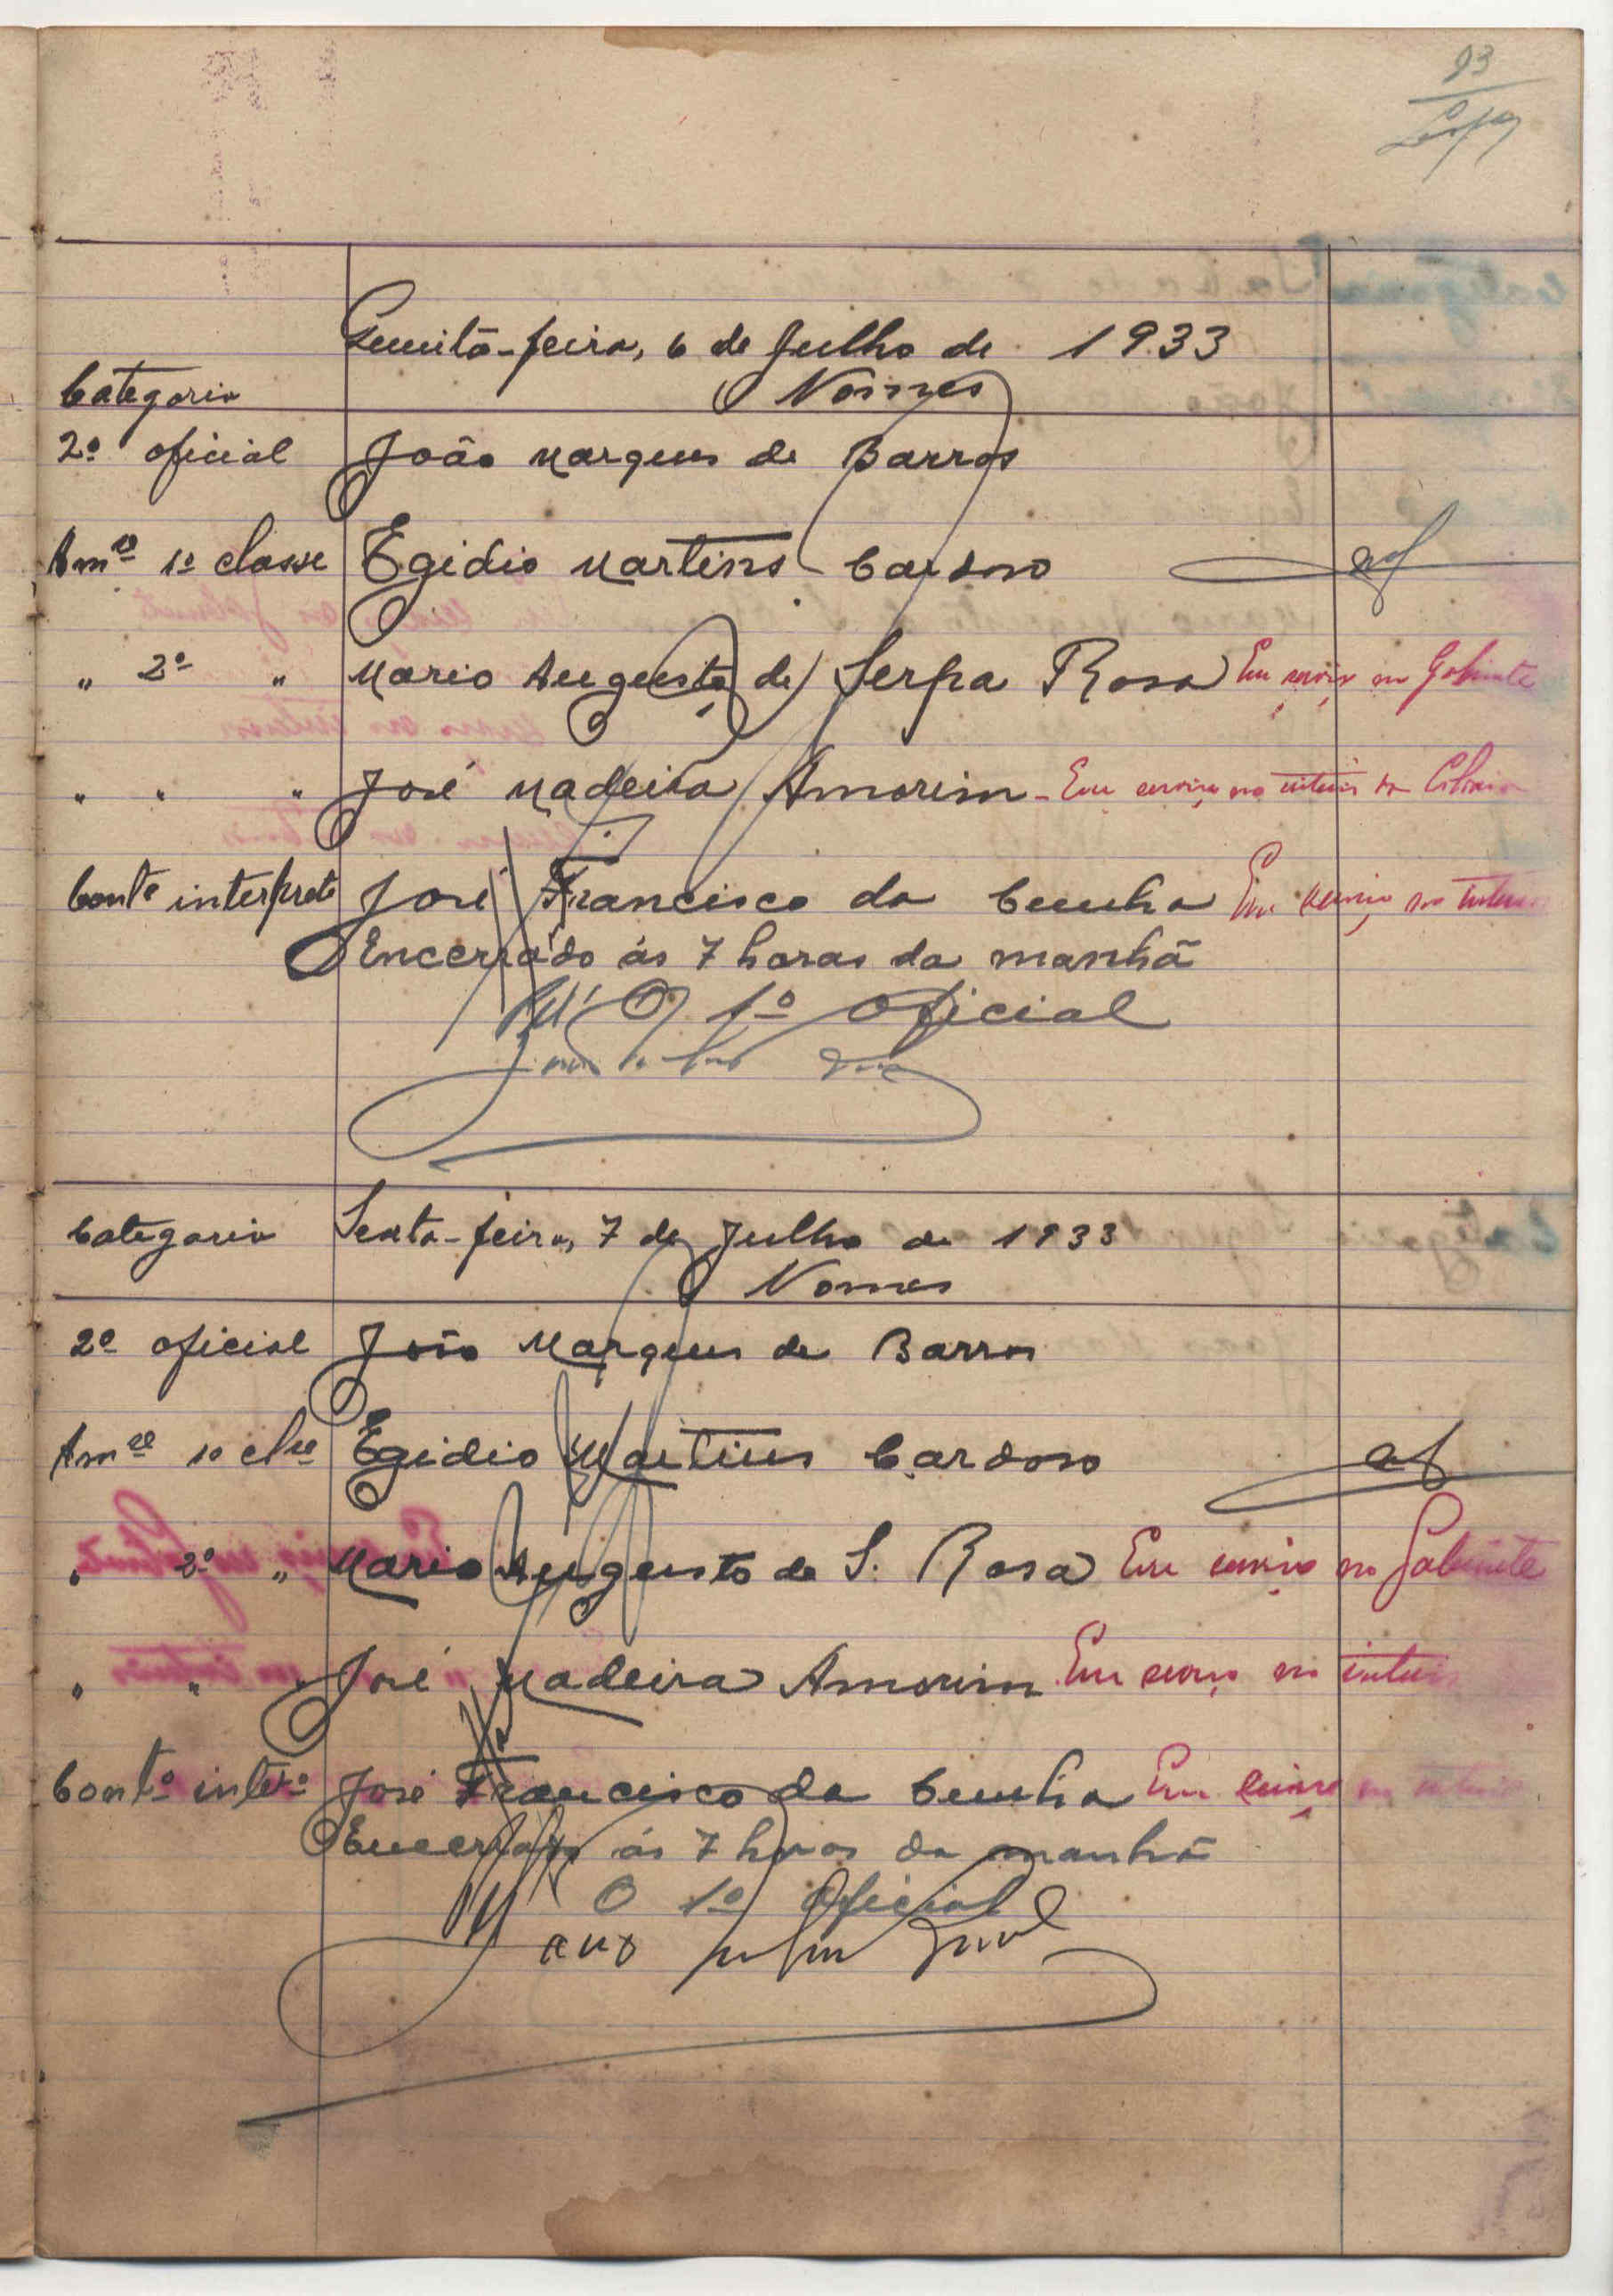 93
Quinta-feira, 6 de Julho de 1933
Categoria Nomes
2º oficial João Marques de Barros
Amse 1ª classe Egidio Martins Cardoso
" 2ª " Mario Augusto de Serpa Rosa Em serviço no Gabinete
" " " José Madeira Amorim - Em serviço no interior da
Conte interprete José Francisco da Cunha Em serviço no interior
Encerrado ás 7 horas da manhã
O 1º Oficial
Categoria Sexta-feira, 7 de Julho de 1933
Nomes
2º oficial João Marques de Barros
Amse 1º clse Egidio Martins Cardoso
" 2º " Mario Augusto de S. Rosa Em serviço no Gabinete
" " " José Madeira Amorim Em serviço no interior
Conto intero José Francisco da Cunha Em serviço no interior
Encerrado ás 7 horas da manhã
O 1º Oficial